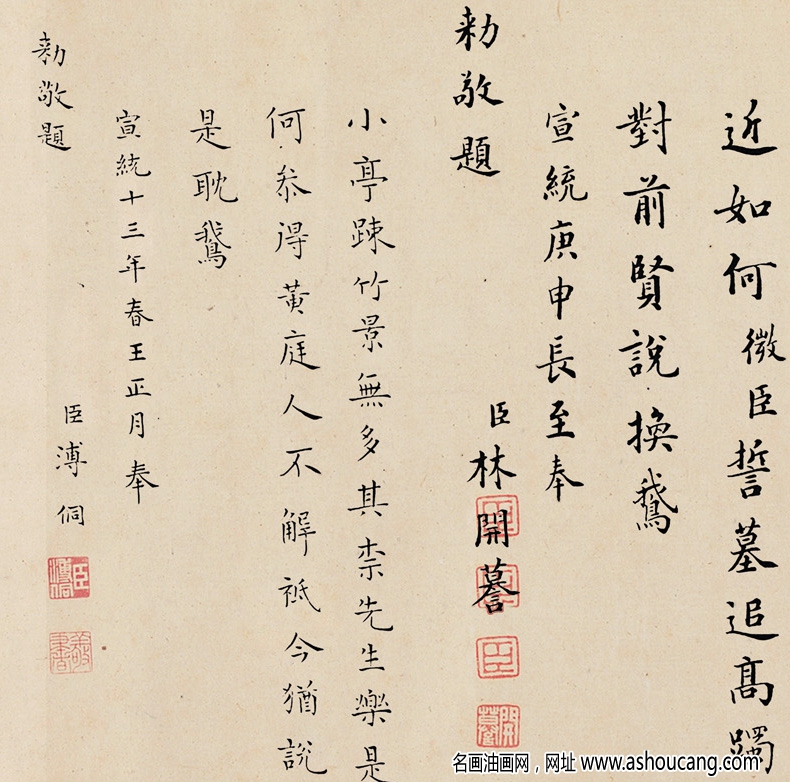 近如何微臣誓墓追高躅
對前賢說換鵞
宣統庚申長至奉
勑敬題
臣林開謩
小亭踈竹景無多其柰先生樂是
何叅得黃庭人不解祇今猶說
是耽鵞
宣統十三年春王正月奉
勑敬題
臣溥侗
名画油画网，网址 www.ashoucang.com